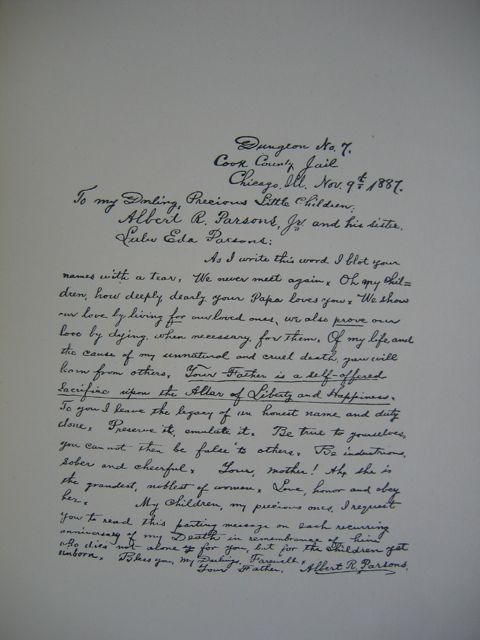 Dungeon No. 7,
Cook County Jail
Chicago, Ill. Nov. 9th 1887.
To my Darling, Precious Little Children,
Albert R. Parsons, Jr. and his sister,
Lulu Eda Parsons:
As I write this word I blot your
names with a tear. We never meet again. Oh my Chil=
dren, how deeply, dearly your Papa loves you. We show
our love by living for our loved ones, we also prove our
love by dying, when necessary, for them. Of my life and
the cause of my unnatural and cruel death, you will
learn from others. Your Father is a self-offered
Sacrifice upon the Altar of Liberty and Happiness.
To you I leave the legacy of an honest name and duty
done. Preserve it, emulate it. Be true to yourselves,
you cannot then be false to others. Be industrious,
sober and cheerful. Your, mother! Ah, she is
the grandest, noblest of women. Love, honor and obey
her. My Children, my precious ones, I request
you to read this parting message on each recurring
anniversary of my Death in remembrance of him
who dies not alone for you, but for the Children yet
unborn. Bless you, my Darlings, Farewell.
Your Father, Albert R. Parsons.